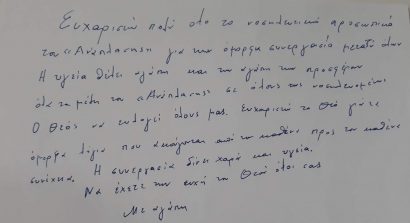 Ευχαριστώ πολύ όλο το νοσηλευτικό προσωπικό
του «Ανάπλαση» για την όμορφη συνεργασία μεταξύ όλων
Η υγεία θέλει αγάπη και την αγάπη την προσφέρουν
όλα τα μέλη του «Ανάπλαση» σε όλους τους νοσηλευομένους
Ο Θεός να ευλογεί όλους μας. Ευχαριστώ το Θεό για τα
όμορφα λόγια που ακούγονται από τον καθένα προς τον καθένα
συνέχεια. Η συνεργασία δίνει χαρά και υγεία.
Να έχετε την ευχή του Θεού όλοι σας
Με αγάπη